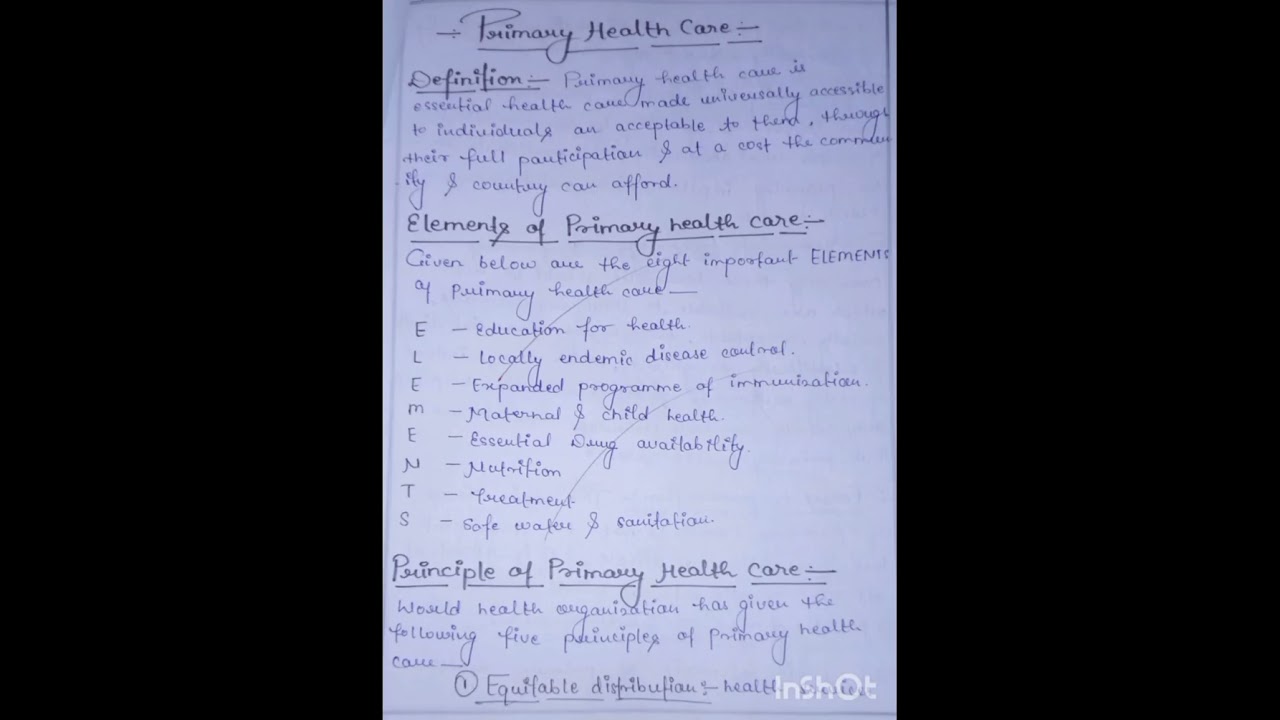 ÷ Primary Health Care :-
Definition :- Primary health care is
essential health care made universally accessible
to individuals an acceptable to them, through
their full participation & at a cost the commun
ity & country can afford.
Elements of Primary health care :-
Given below are the eight important ELEMENTS
of Primary health care —
E — Education for health.
L — Locally endemic disease control.
E — Expanded programme of immunization.
M — Maternal & child health.
E — Essential Drug availability.
N — Nutrition
T — Treatment
S — Safe water & sanitation.
Principle of Primary Health Care :-
World health organization has given the
following five principles of primary health
care —
① Equitable distribution :- health
InShOt